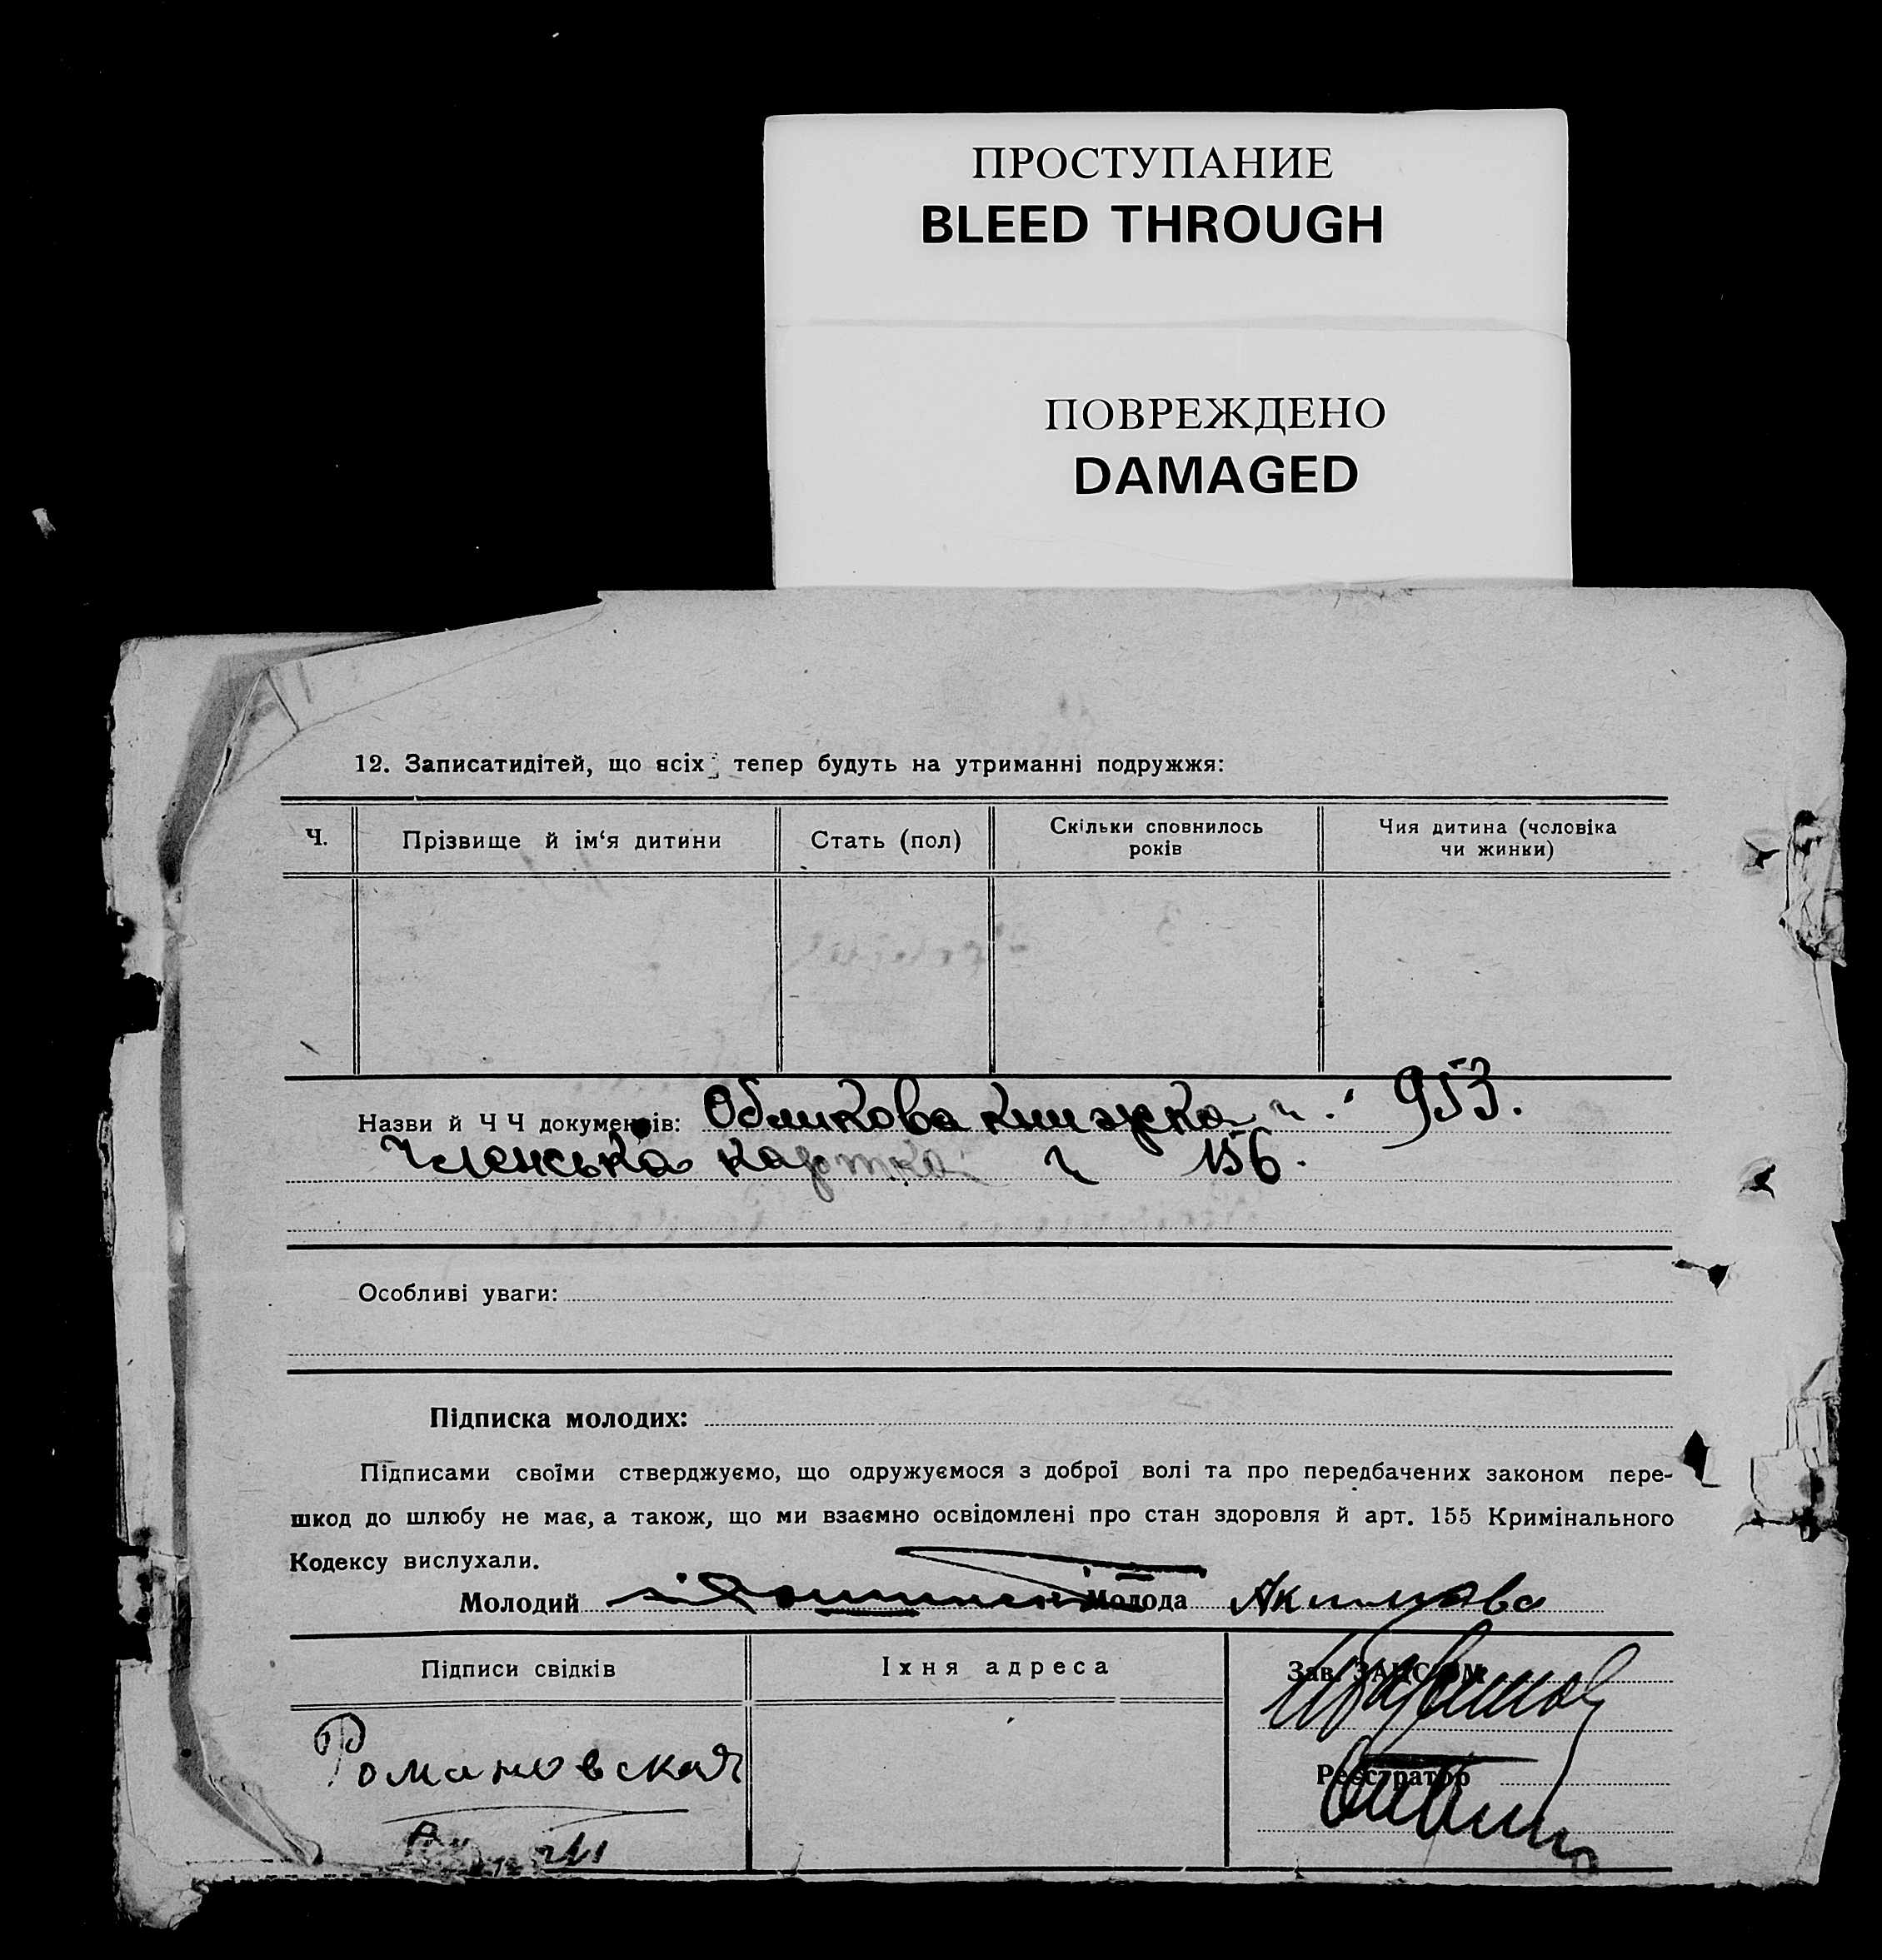 ПРОСТУПАНИЕ
BLEED THROUGH
ПОВРЕЖДЕНО
DAMAGED
12. Записатидітей, що всіх тепер будуть на утриманні подружжя:
Ч.
Прізвище й ім‘я дитини
Стать (пол)
Скільки сповнилось
років
Чия дитина (чоловіка
чи жинки)
Назви й Ч Ч документів: Обликова книжка ч. 953.
Членська картка ч 156.
Особливі уваги:
Підписка молодих:
Підписами своїми стверджуємо, що одружуємося з доброї волі та про передбачених законом пере-
шкод до шлюбу не має, а також, що ми взаємно освідомлені про стан здоровля й арт. 155 Кримінального
Кодексу вислухали.
Молодий Молода Акимова
Підписи свідків
Їхня адреса
Зав. ЗАГСОМ
Романовская
Реєстратор